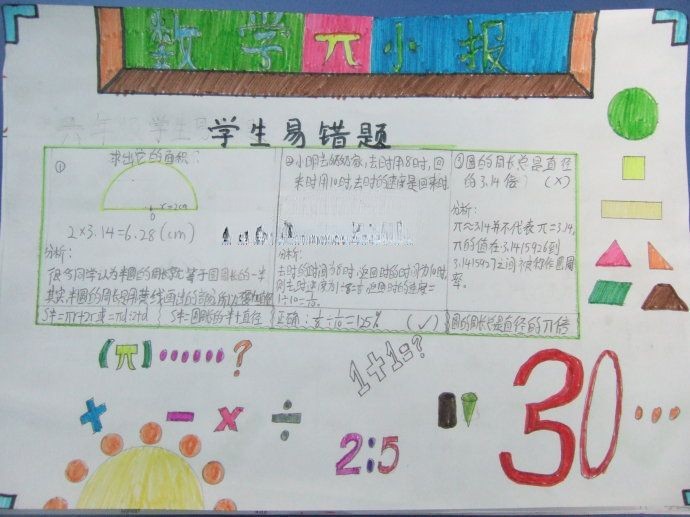 数学π小报
学生易错题
① 求出它的面积?
r=2cm
2×3.14=6.28(cm)
分析:
很多同学认为半圆的周长就等于圆周长的一半
其实,半圆的周长
S半=πr+2r 或=πd÷2+d
S半=圆周长的一半+直径
②小明去奶奶家,去时用8时,回
来时用10时,去时的速度是回来时
分析:
去时的时间为8时,返回时的时间为10时,
则去时速度为1÷8=1/8,返回时的速度=
1÷10=1/10.
正确:1/8÷1/10=125% (✓)
③圆的周长总是直径
的3.14倍? (×)
分析:
π≈3.14并不代表π=3.14,
π的值在3.1415926到
3.1415927之间
率。
圆的周长总是直径的π倍
(π)••••••?
1+1=?
+ − × ÷
2:5
30...